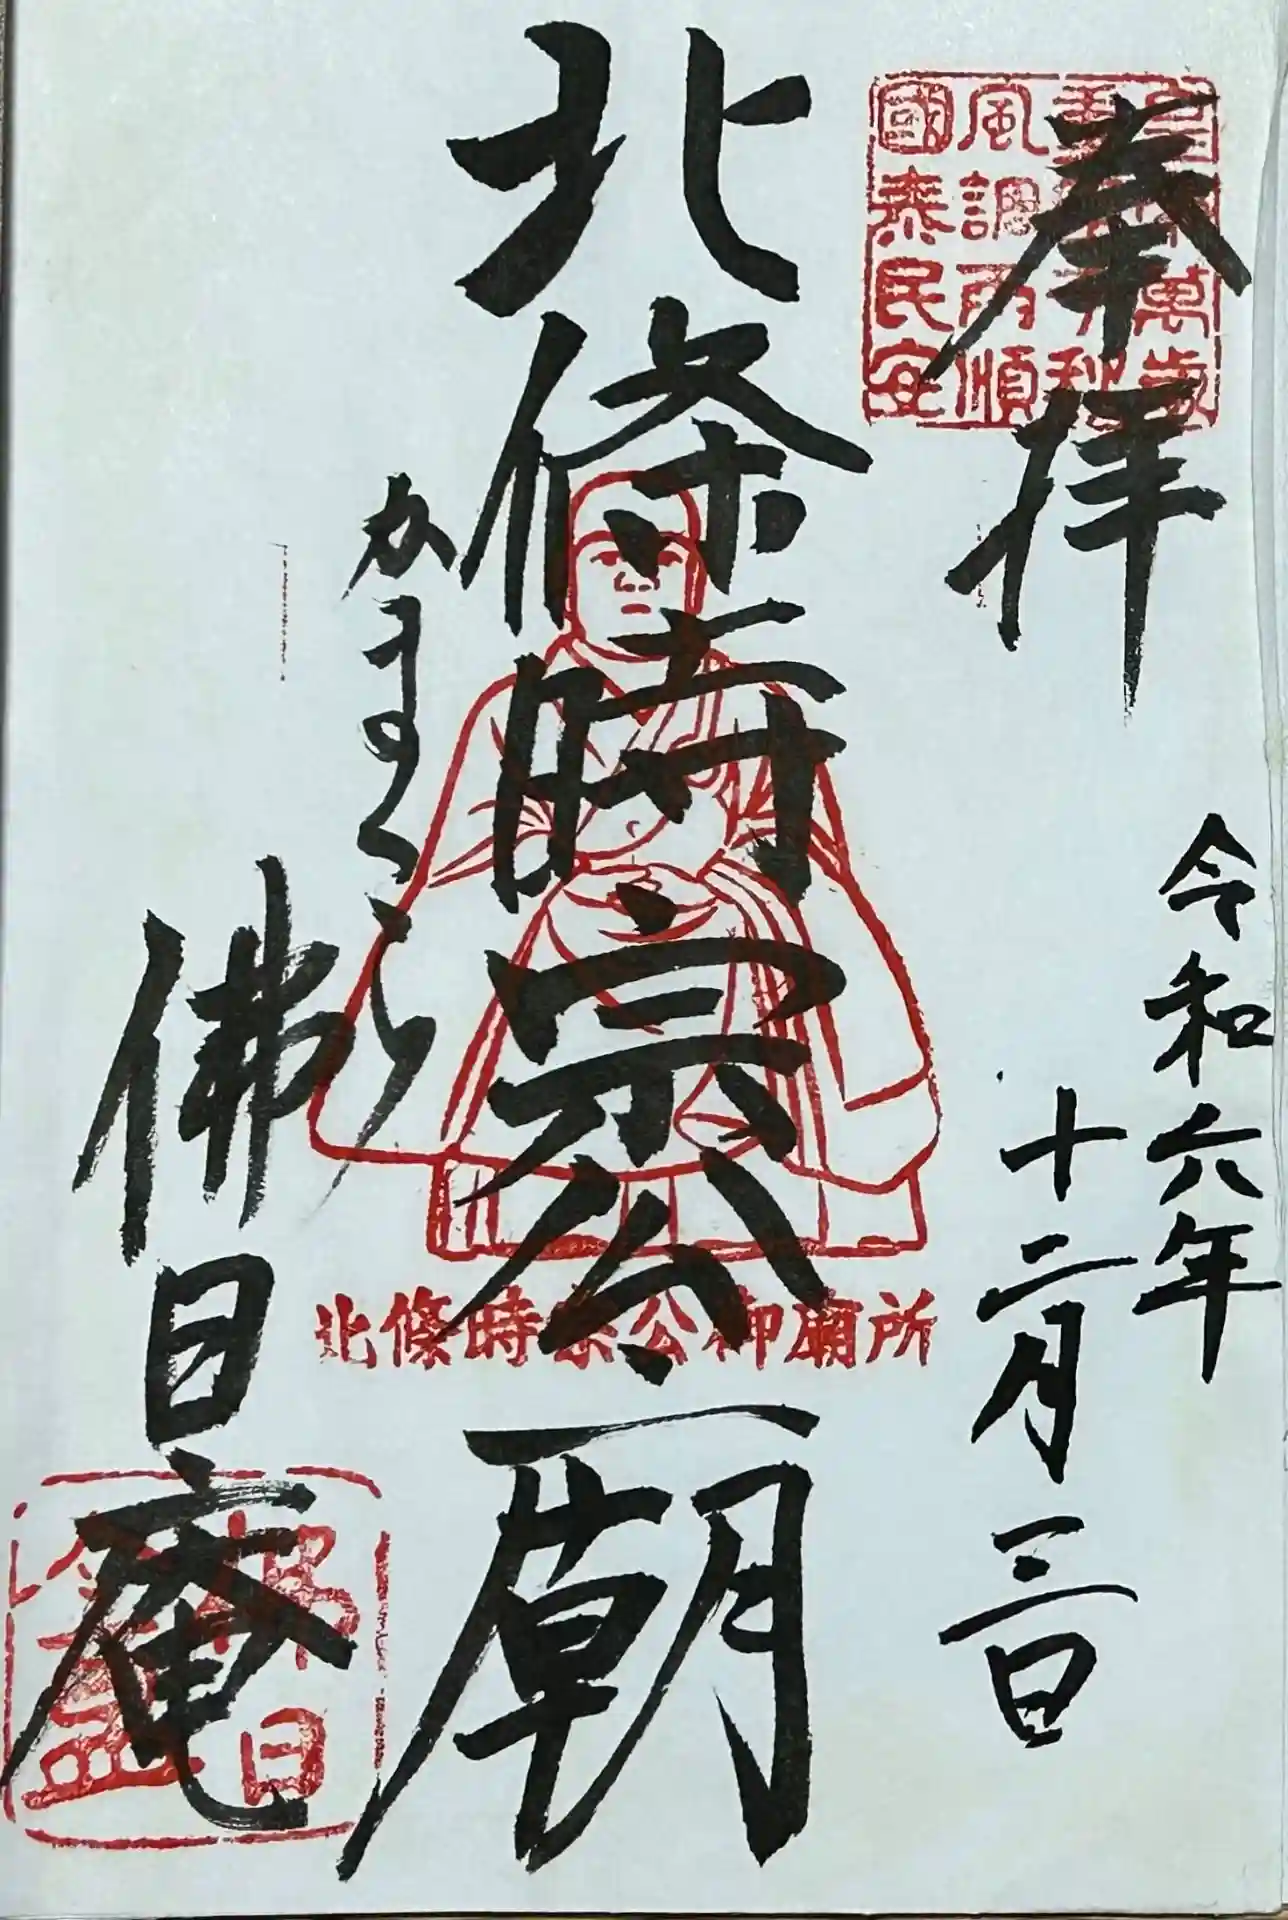 奉拝
令和六年
十二月三日
北條時宗公廟
かまくら
佛日庵
風調雨順
國泰民安
北條時宗公御廟所